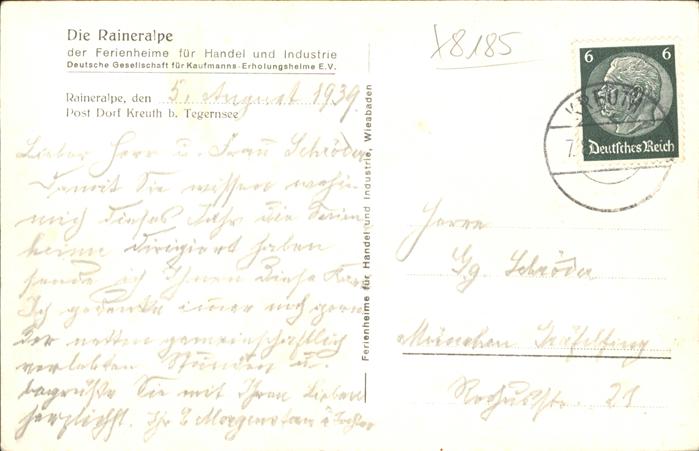 Die Raineralpe
der Ferienheime für Handel und Industrie
Deutsche Gesellschaft für Kaufmanns-Erholungsheime E.V.
Raineralpe, den 5. August 1939.
Post Dorf Kreuth b. Tegernsee
Lieber Herr u. Frau Schröder
Damit Sie wissen wohin
mich dieses Jahr die Ferien
heime dirigiert haben
sende ich Ihnen diese Karte
Ich gedenke immer noch gern
der netten gemeinschaftlich
verlebten Stunden u.
begrüße Sie mit Ihren Lieben
herzlichst. Ihr Morgenstern u
Ferienheime für Handel und Industrie, Wiesbaden
X8185
6 6
Deutsches Reich
KREUTH
7.
Herrn
Gg. Schröder
München Gräfelfing
Rochusstr. 21